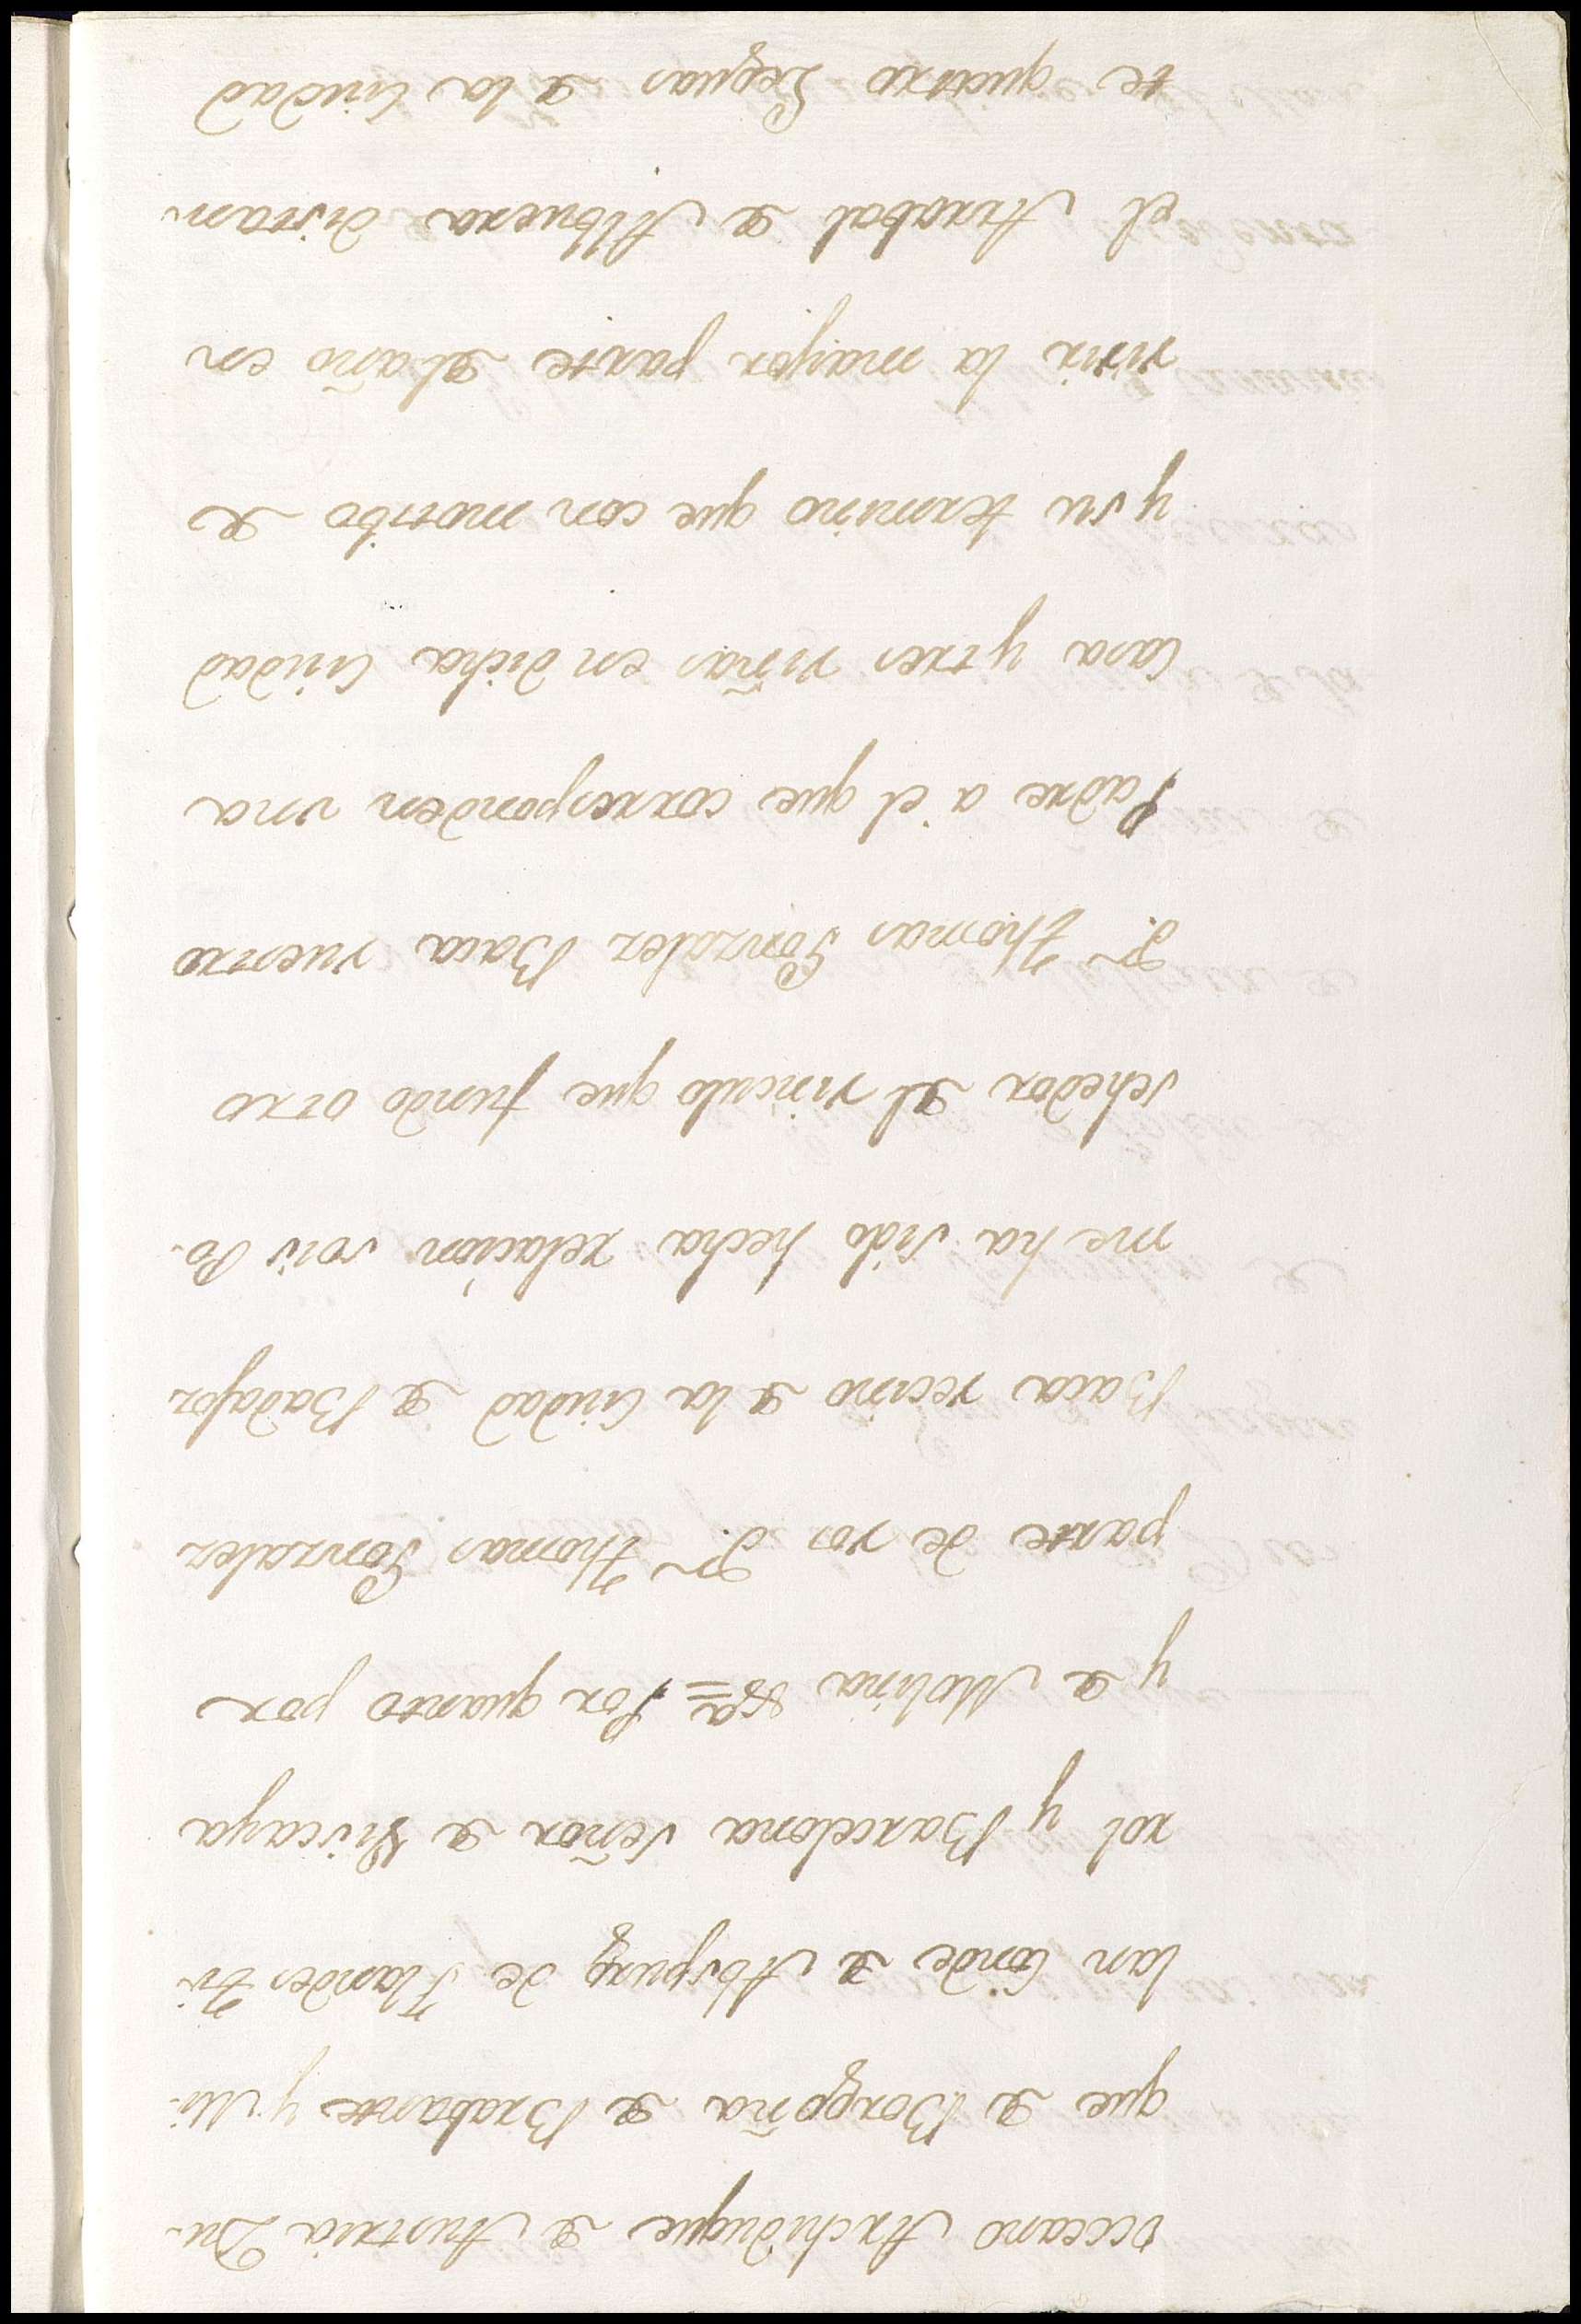 occeano Archiduque de Austria Du-
que de Borgoña de Brabante y Mi-
lan Conde de Abspurg de Flandes Ti-
rol y Barcelona señor de Vizcaya
y de Molina &a = Por quanto por
parte de vos Dn. Thomas Gonzalez
Baca vecino de la Ciudad de Badajoz
me ha sido hecha relación sois Po-
sehedor del vinculo que fundo otro
Dn. Thomas Gonzalez Baca vuestro
Padre a el que corresponden una
Casa y tres viñas en dicha Ciudad
y su termino que con motibo de
vivir la mayor parte del año en
el Arrabal de Albuera distan-
te quatro Leguas de la Ciudad